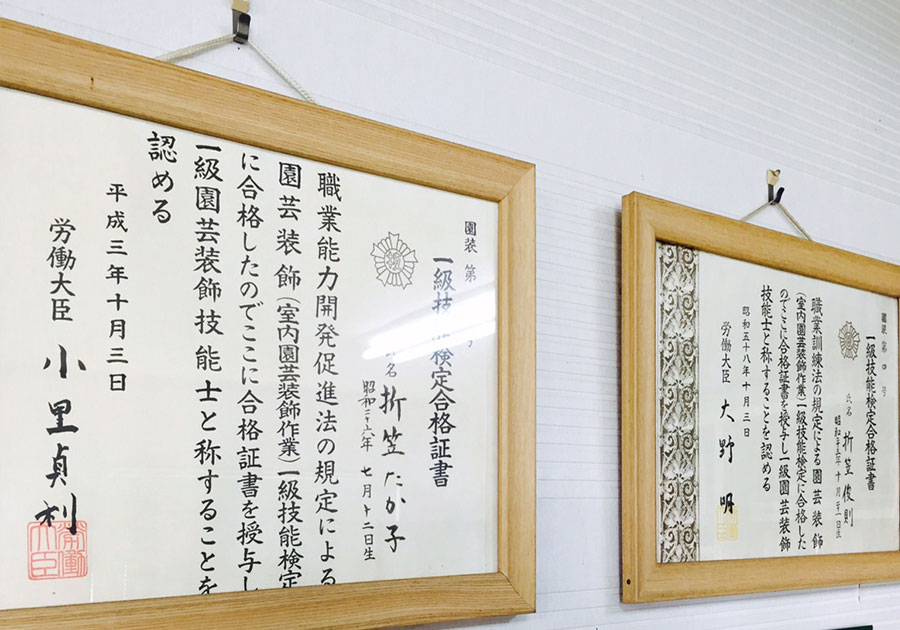 園装第 号
一級技 検定合格証書
名 折笠たか子
昭和 年 七月十二日生
職業能力開発促進法の規定による
園芸装飾(室内園芸装飾作業)一級技能検定
に合格したのでここに合格証書を授与し
一級園芸装飾技能士と称することを
認める
平成三年十月三日
労働大臣 小里貞利
労働大臣
園装第四号
一級技能検定合格証書
氏名 折笠俊則
昭和 年十月 日生
職業訓練法の規定による園芸装飾
(室内園芸装飾作業)一級技能検定に合格した
のでここに合格証書を授与し一級園芸装飾
技能士と称することを認める
昭和五十八年十月三日
労働大臣 大野明